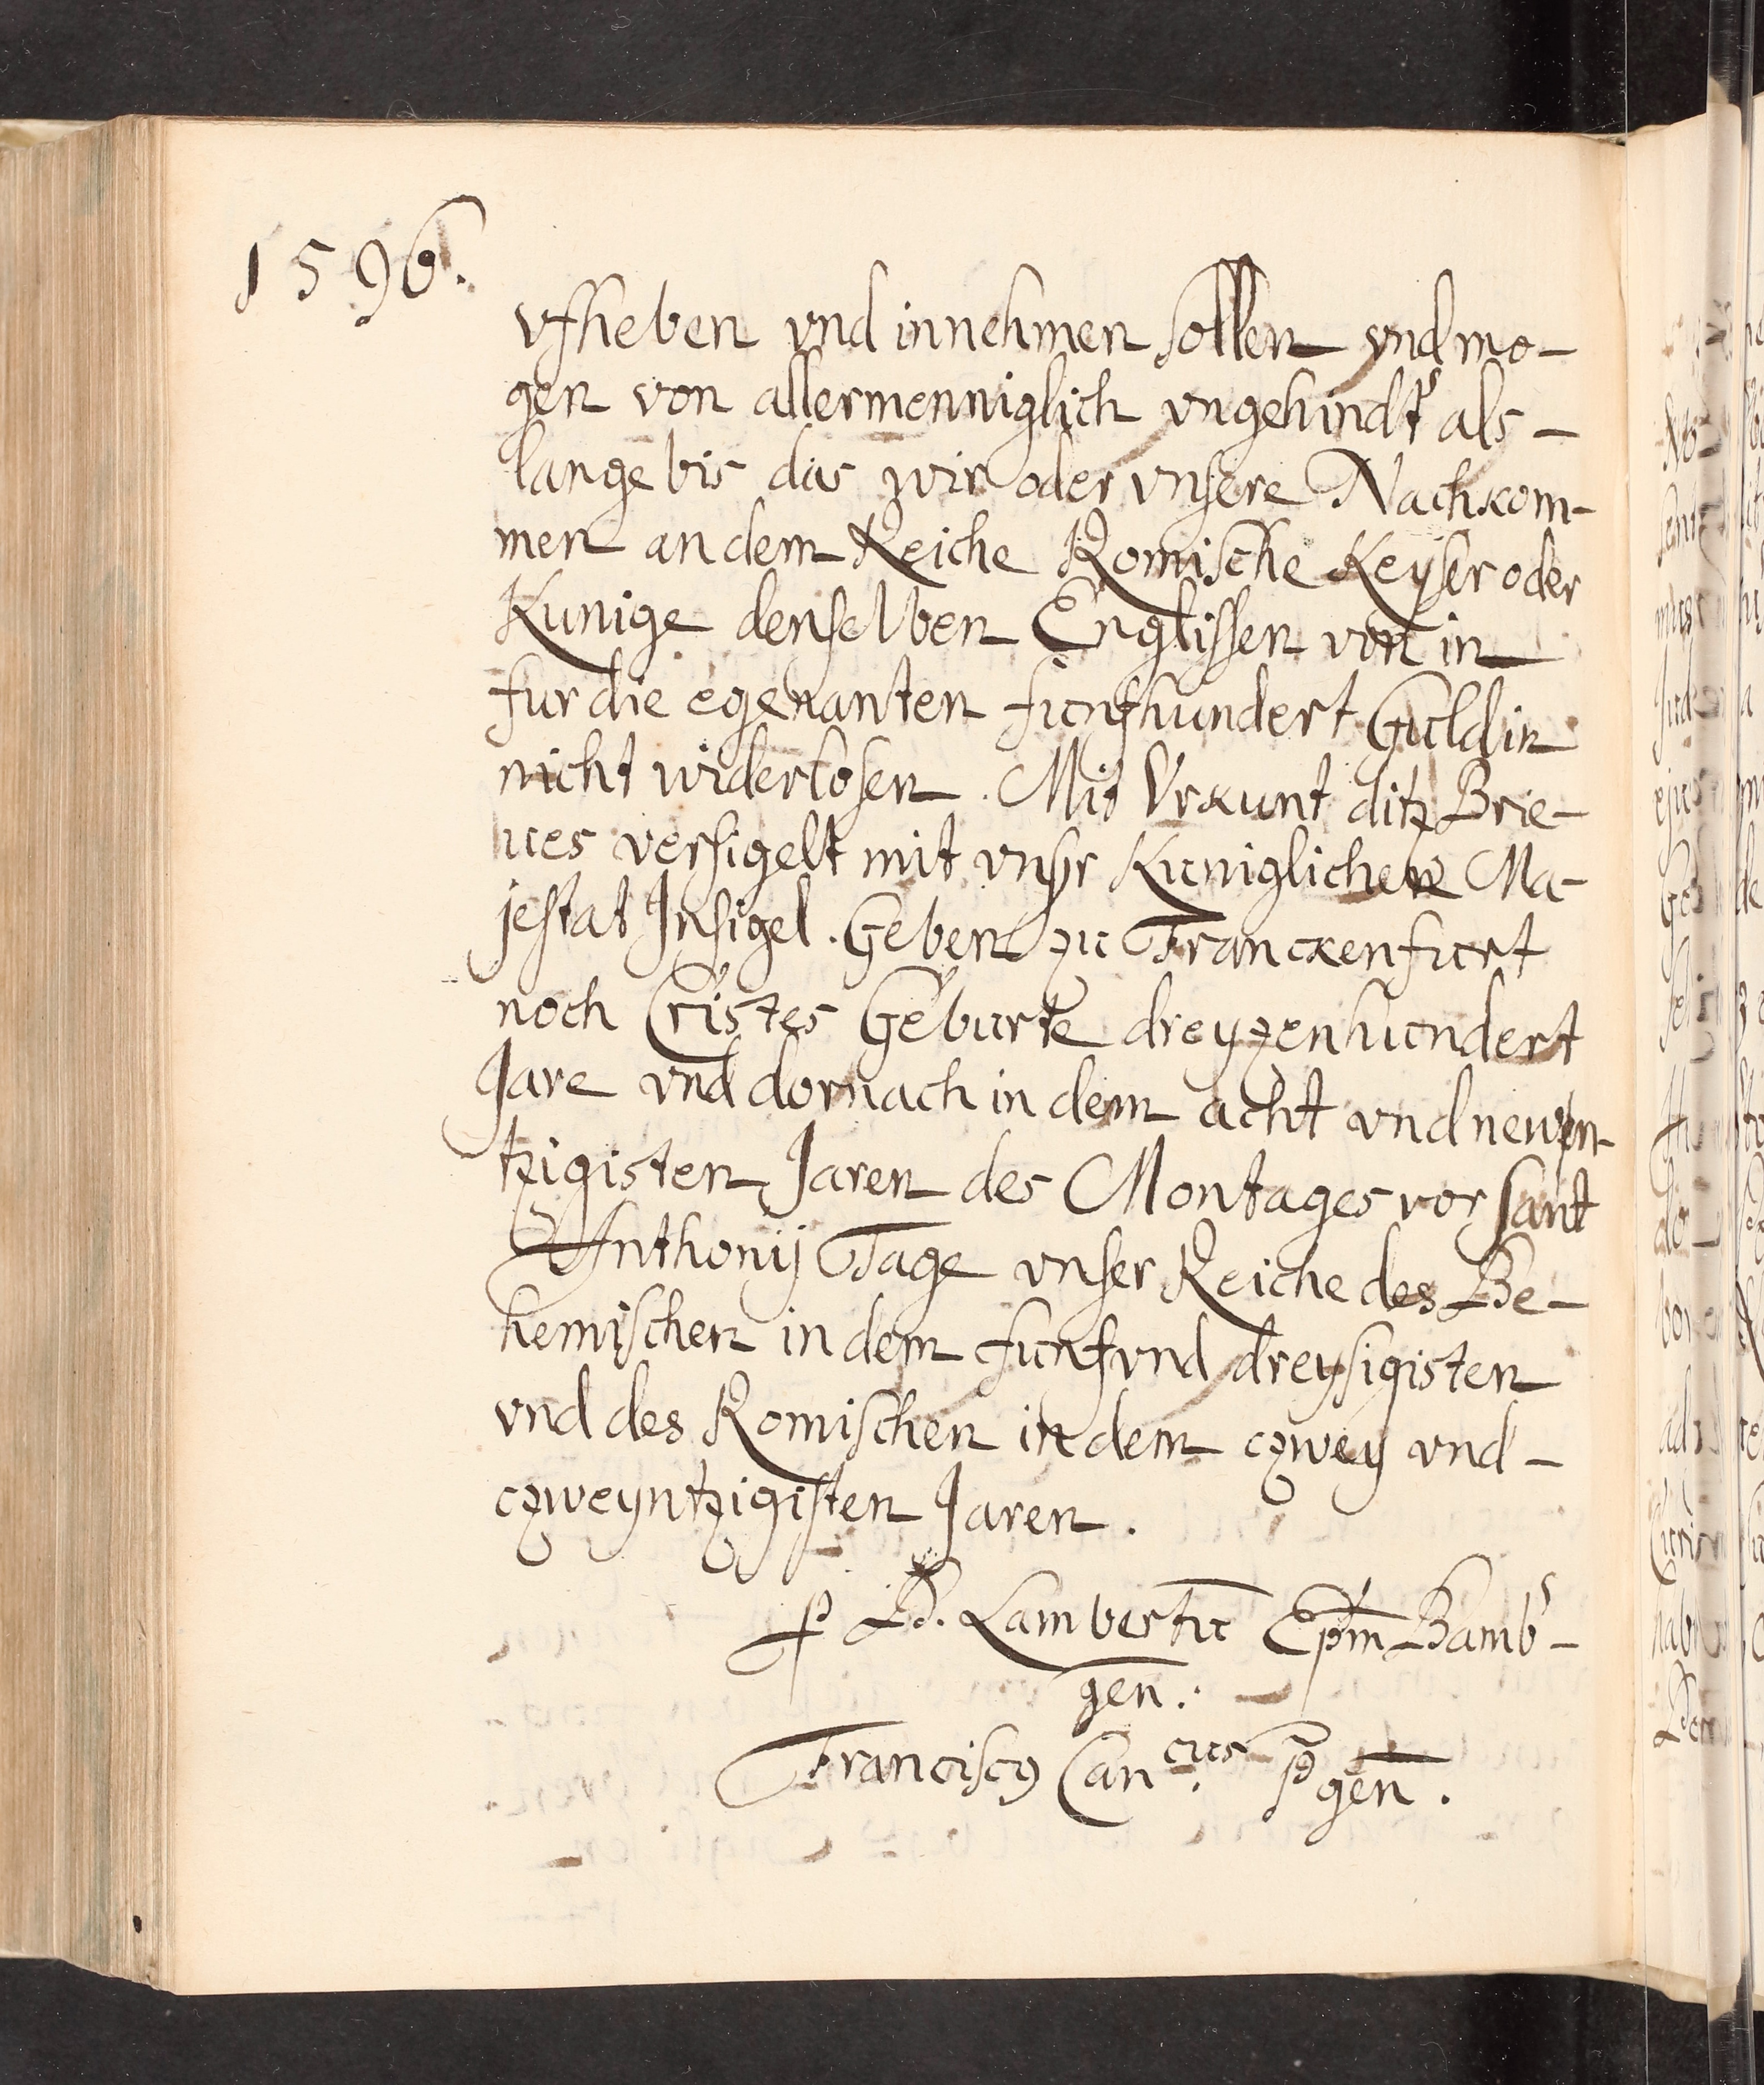 1596.
vfheben vnd innehmen sollen vnd mo-
gen von allermenniglich vngehindt als-
lange bis das wir oder vnsere Nachkom-
men an dem Reiche Romische Keyser oder
Kunige denselben Englissen von in
fur die egenanten funfhundert Guldin
nicht widerlosen. Mit Vrkunt ditz Brie-
ues versigelt mit vnsr Kuniglichen Ma-
jestat Insigel. Geben zu Franckenfurt
noch Cristes Geburte dreyzenhundert
Jare vnd dornach in dem acht vnd newen-
tzigisten Jaren des Montages vor sant
Anthonij Tage vnser Reiche des Be-
hemischen in dem funfvnd dreysigisten
vnd des Romischen in dem czwey vnd-
czweyntzigisten Jaren.
P D. Lambertu Epm Bamb-
gen.
Franciscus Can cus. Pgen.